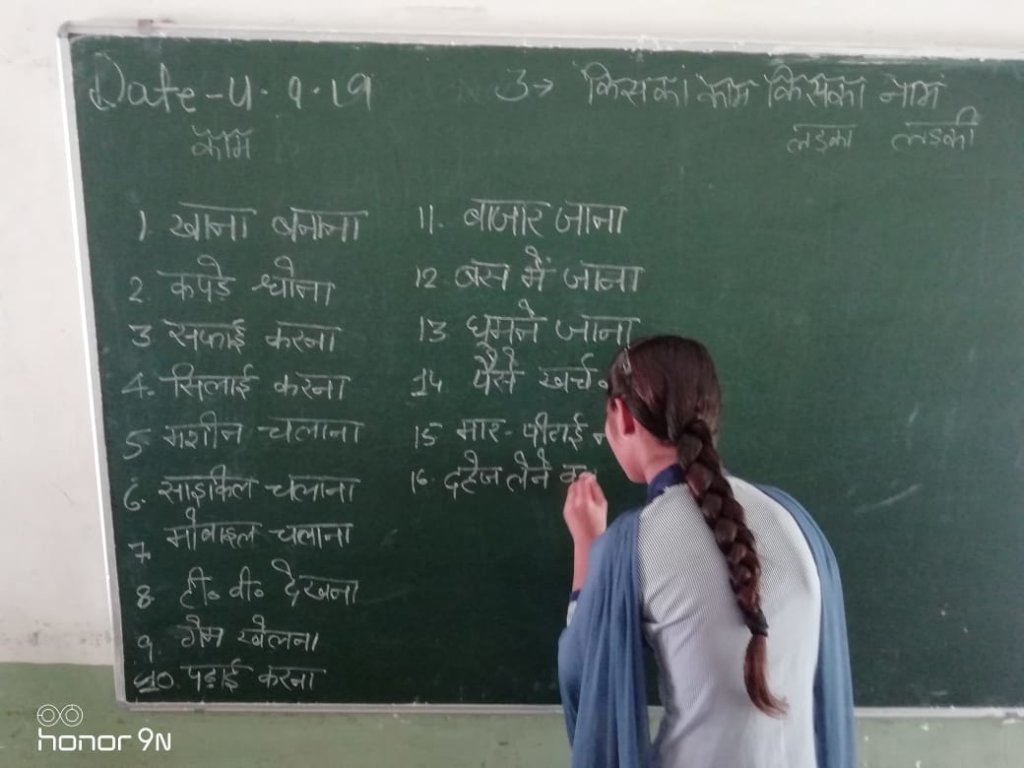 Date - 4.9.19
3→ किसका काम किसका नाम
काम
लड़का लड़की
1 खाना बनाना
2. कपड़े धोना
3 सफाई करना
4. सिलाई करना
5 मशीन चलाना
6. साइकिल चलाना
7 मोबाइल चलाना
8 टी॰ वी॰ देखना
9. गेम खेलना
10. पढ़ाई करना
11. बाजार जाना
12 बस में जाना
13 घूमने जाना
14 पैसे खर्च
15 मार-पीटाई
16. दहेज लेने
honor 9N